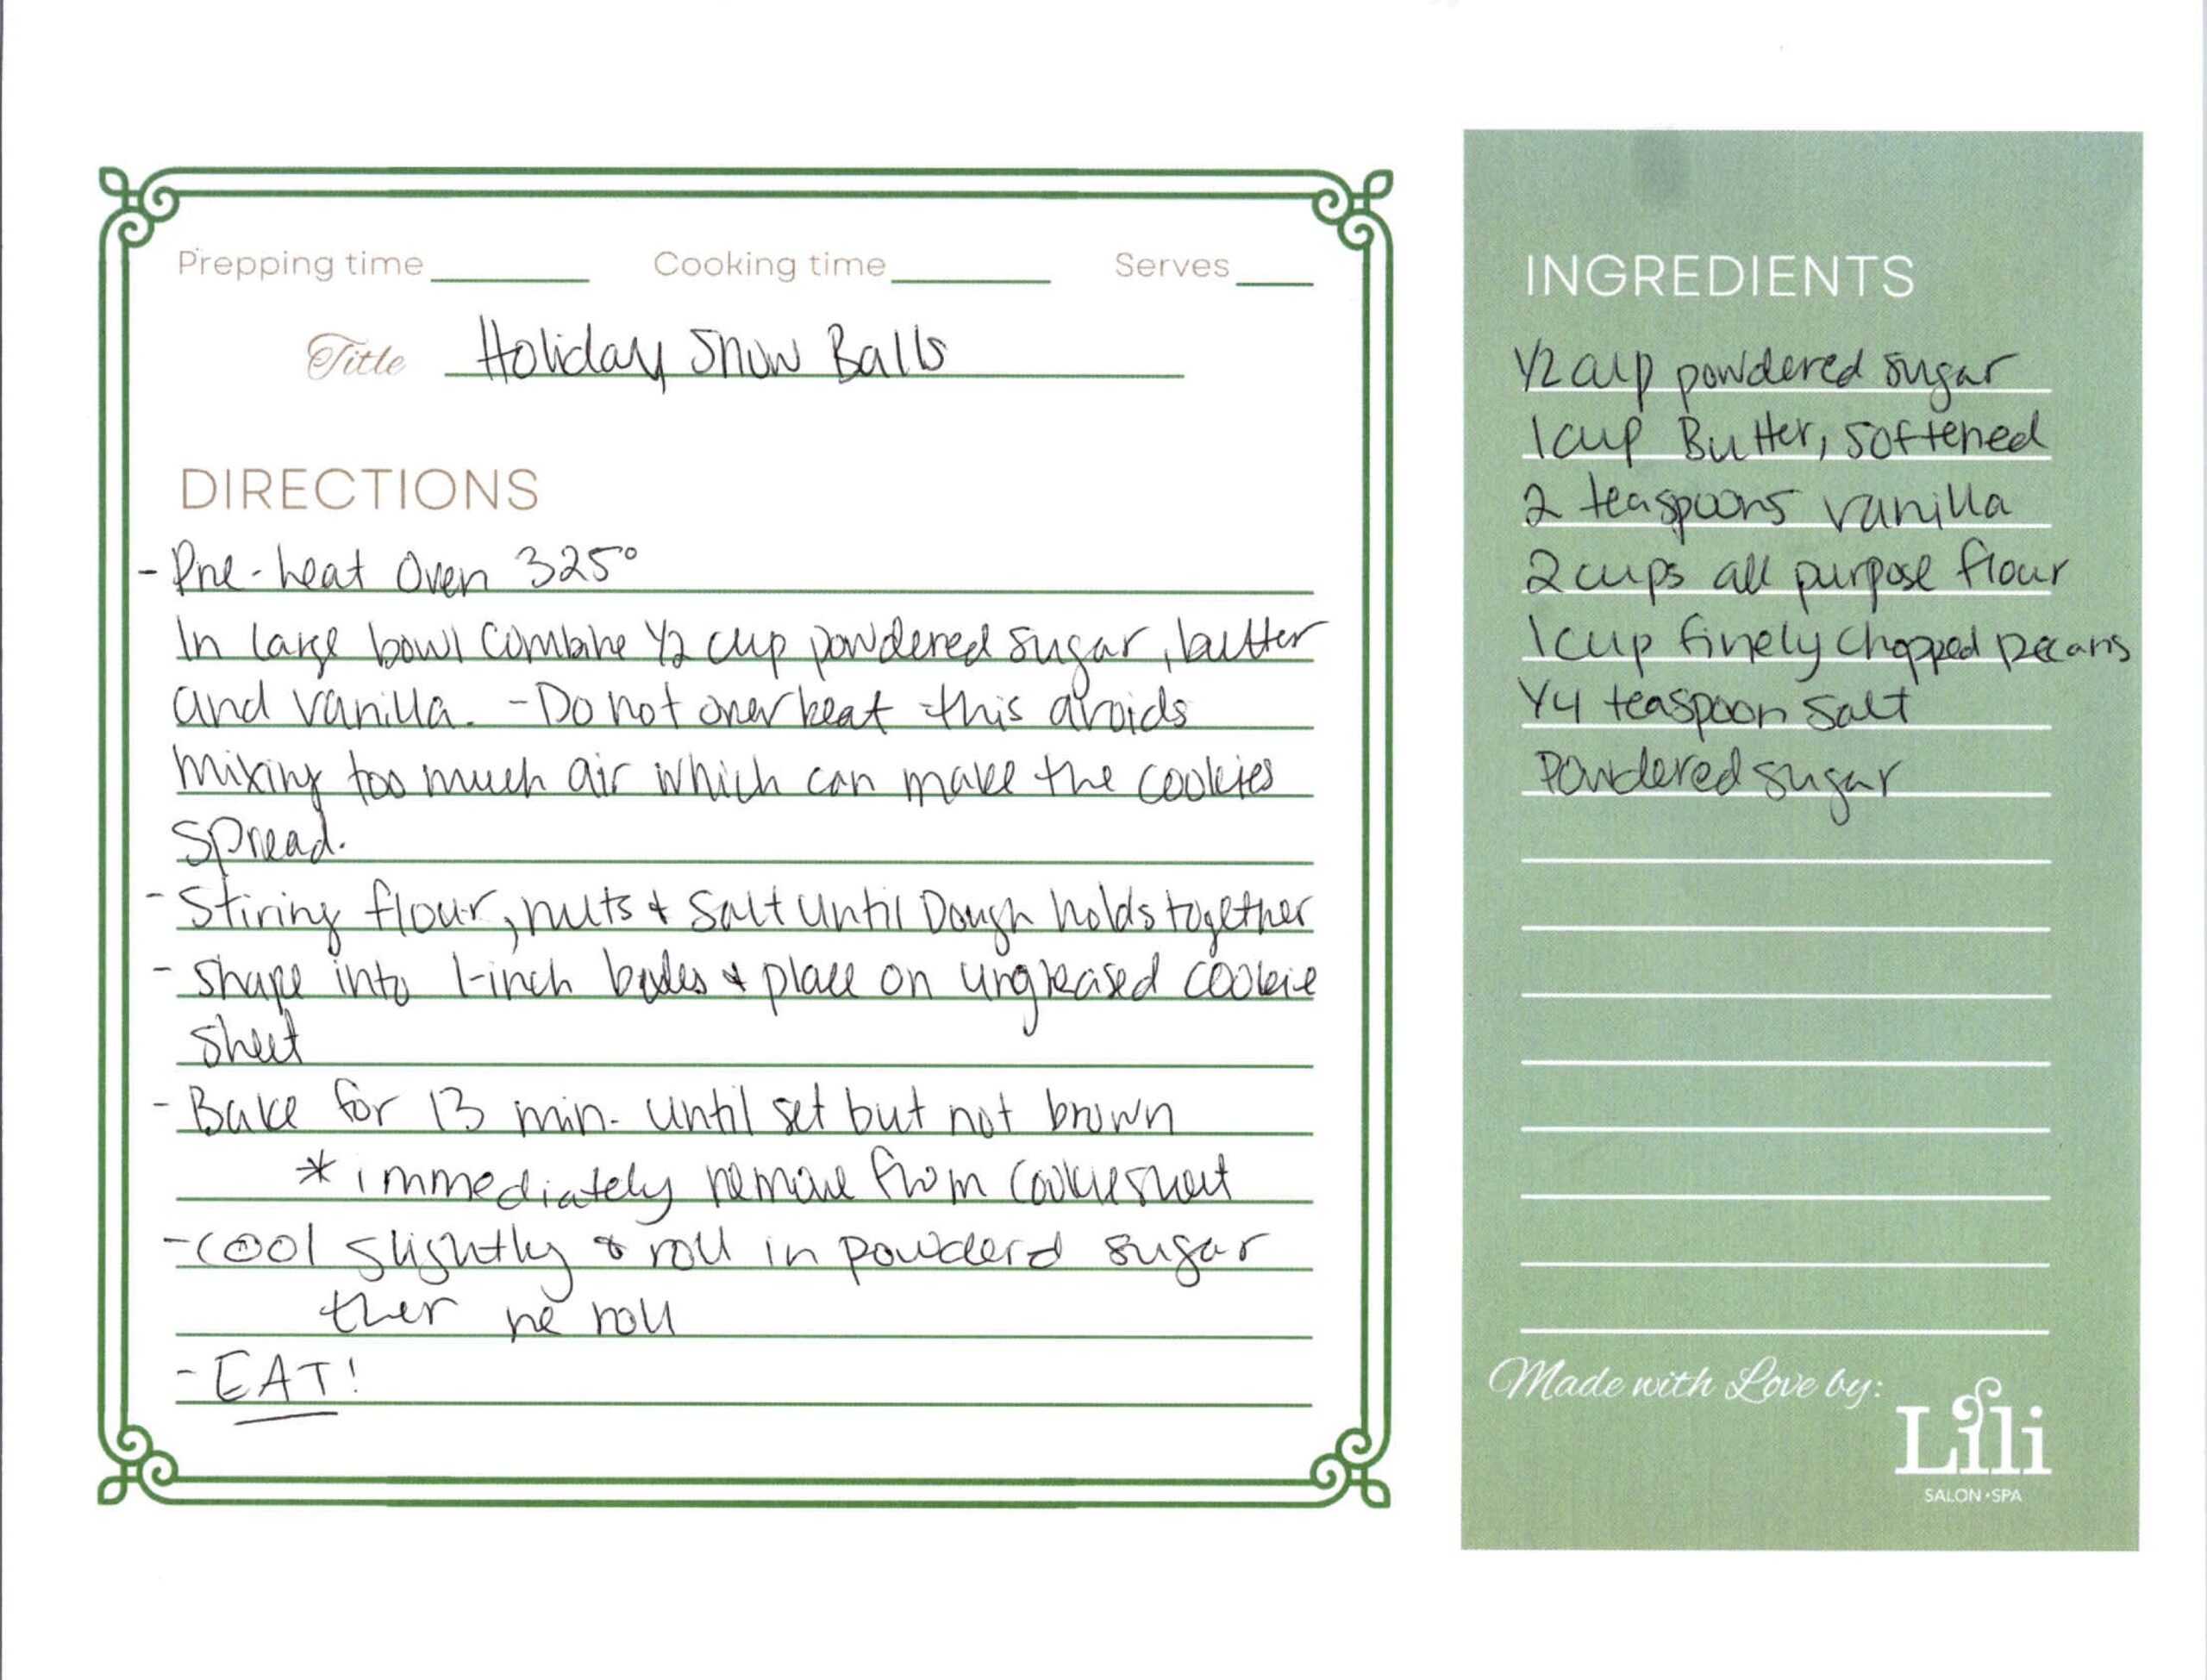 Prepping time Cooking time Serves
Title Holiday Snow Balls
DIRECTIONS
- Pre-heat Oven 325°
In large bowl combine 1/2 cup powdered sugar, butter
and vanilla. - Do not over beat - this avoids
mixing too much air which can make the cookies
spread.
- Stiring flour, nuts & salt until Dough holds together
- shape into 1-inch balles & place on ungreased cookie
sheet
- Bake for 13 min. until set but not brown
* immediately remove from cookie sheet
- cool slightly & roll in powderd sugar
then re roll
- EAT!
INGREDIENTS
1/2 cup powdered sugar
1 cup Butter, softened
2 teaspoons vanilla
2 cups all purpose flour
1 cup finely chopped pecans
1/4 teaspoon salt
Powdered sugar
Made with Love by:
Lili
SALON • SPA